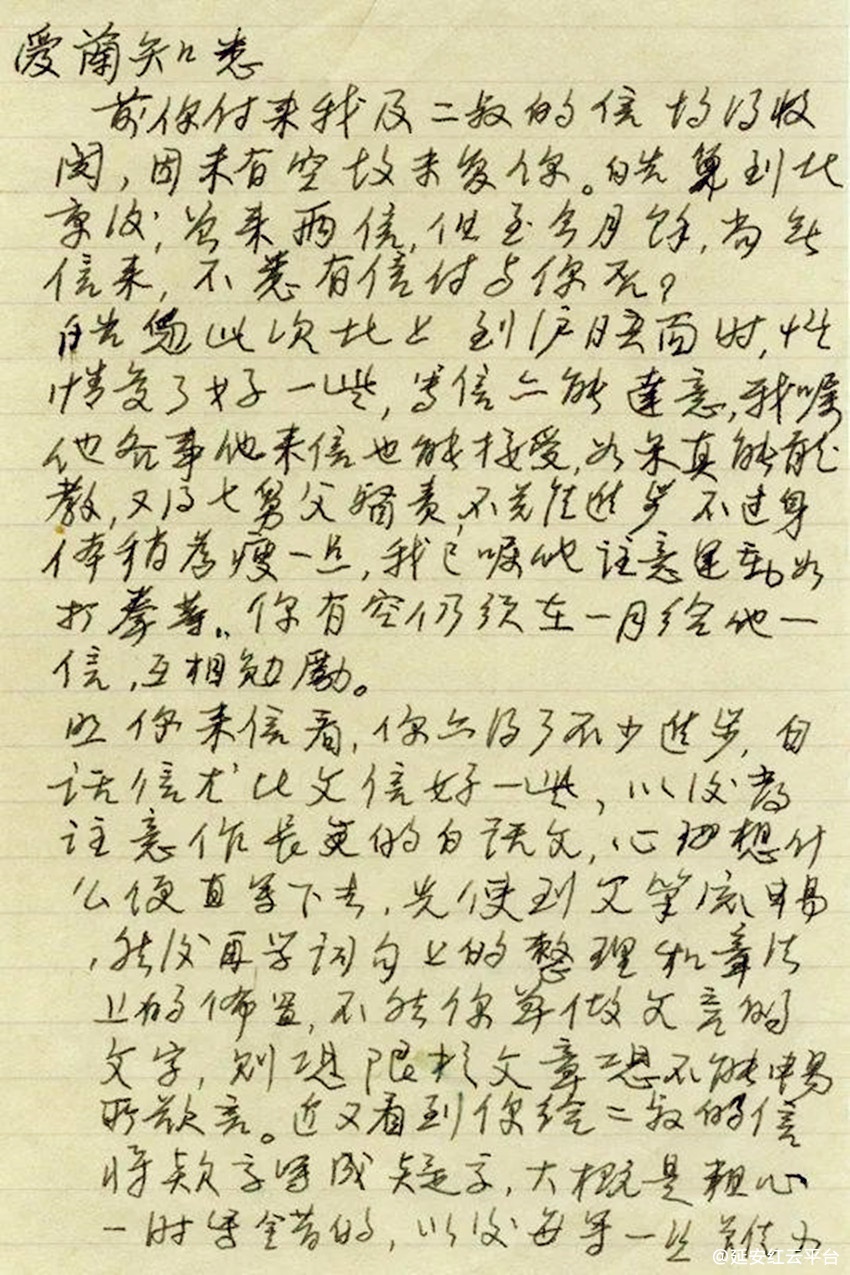 爱兰知悉
前你付来我及二叔的信均得收
阅,因未有空故未复你。皓先算到北
京后,曾来两信,但至今月余,尚无
信来,不悉有信付与你否?
此次北上到沪晤面时,性
情变了好一些,写信亦能达意,我嘱
他各事他来信也能接受,如果真能
教,又得七舅父督责,不 进步不过身
体稍为瘦一点,我已嘱他注意运动如
打拳等。你有空仍须在一月给他一
信,互相勉励。
你来信看,你亦得了不少进步,白
话信尤比文信好一些,以后都
注意作长文的白话文,心里想什
么便直写下去,先使到文笔流畅
,然后再学词句上的整理和章法
上的佈置,不然你单做文言的
文字,则恐限于文章恐不能畅
所欲言。近又看到你给二叔的信
将款字写成疑字,大概是粗心
一时写错的,以后每写一
@延安红云平台